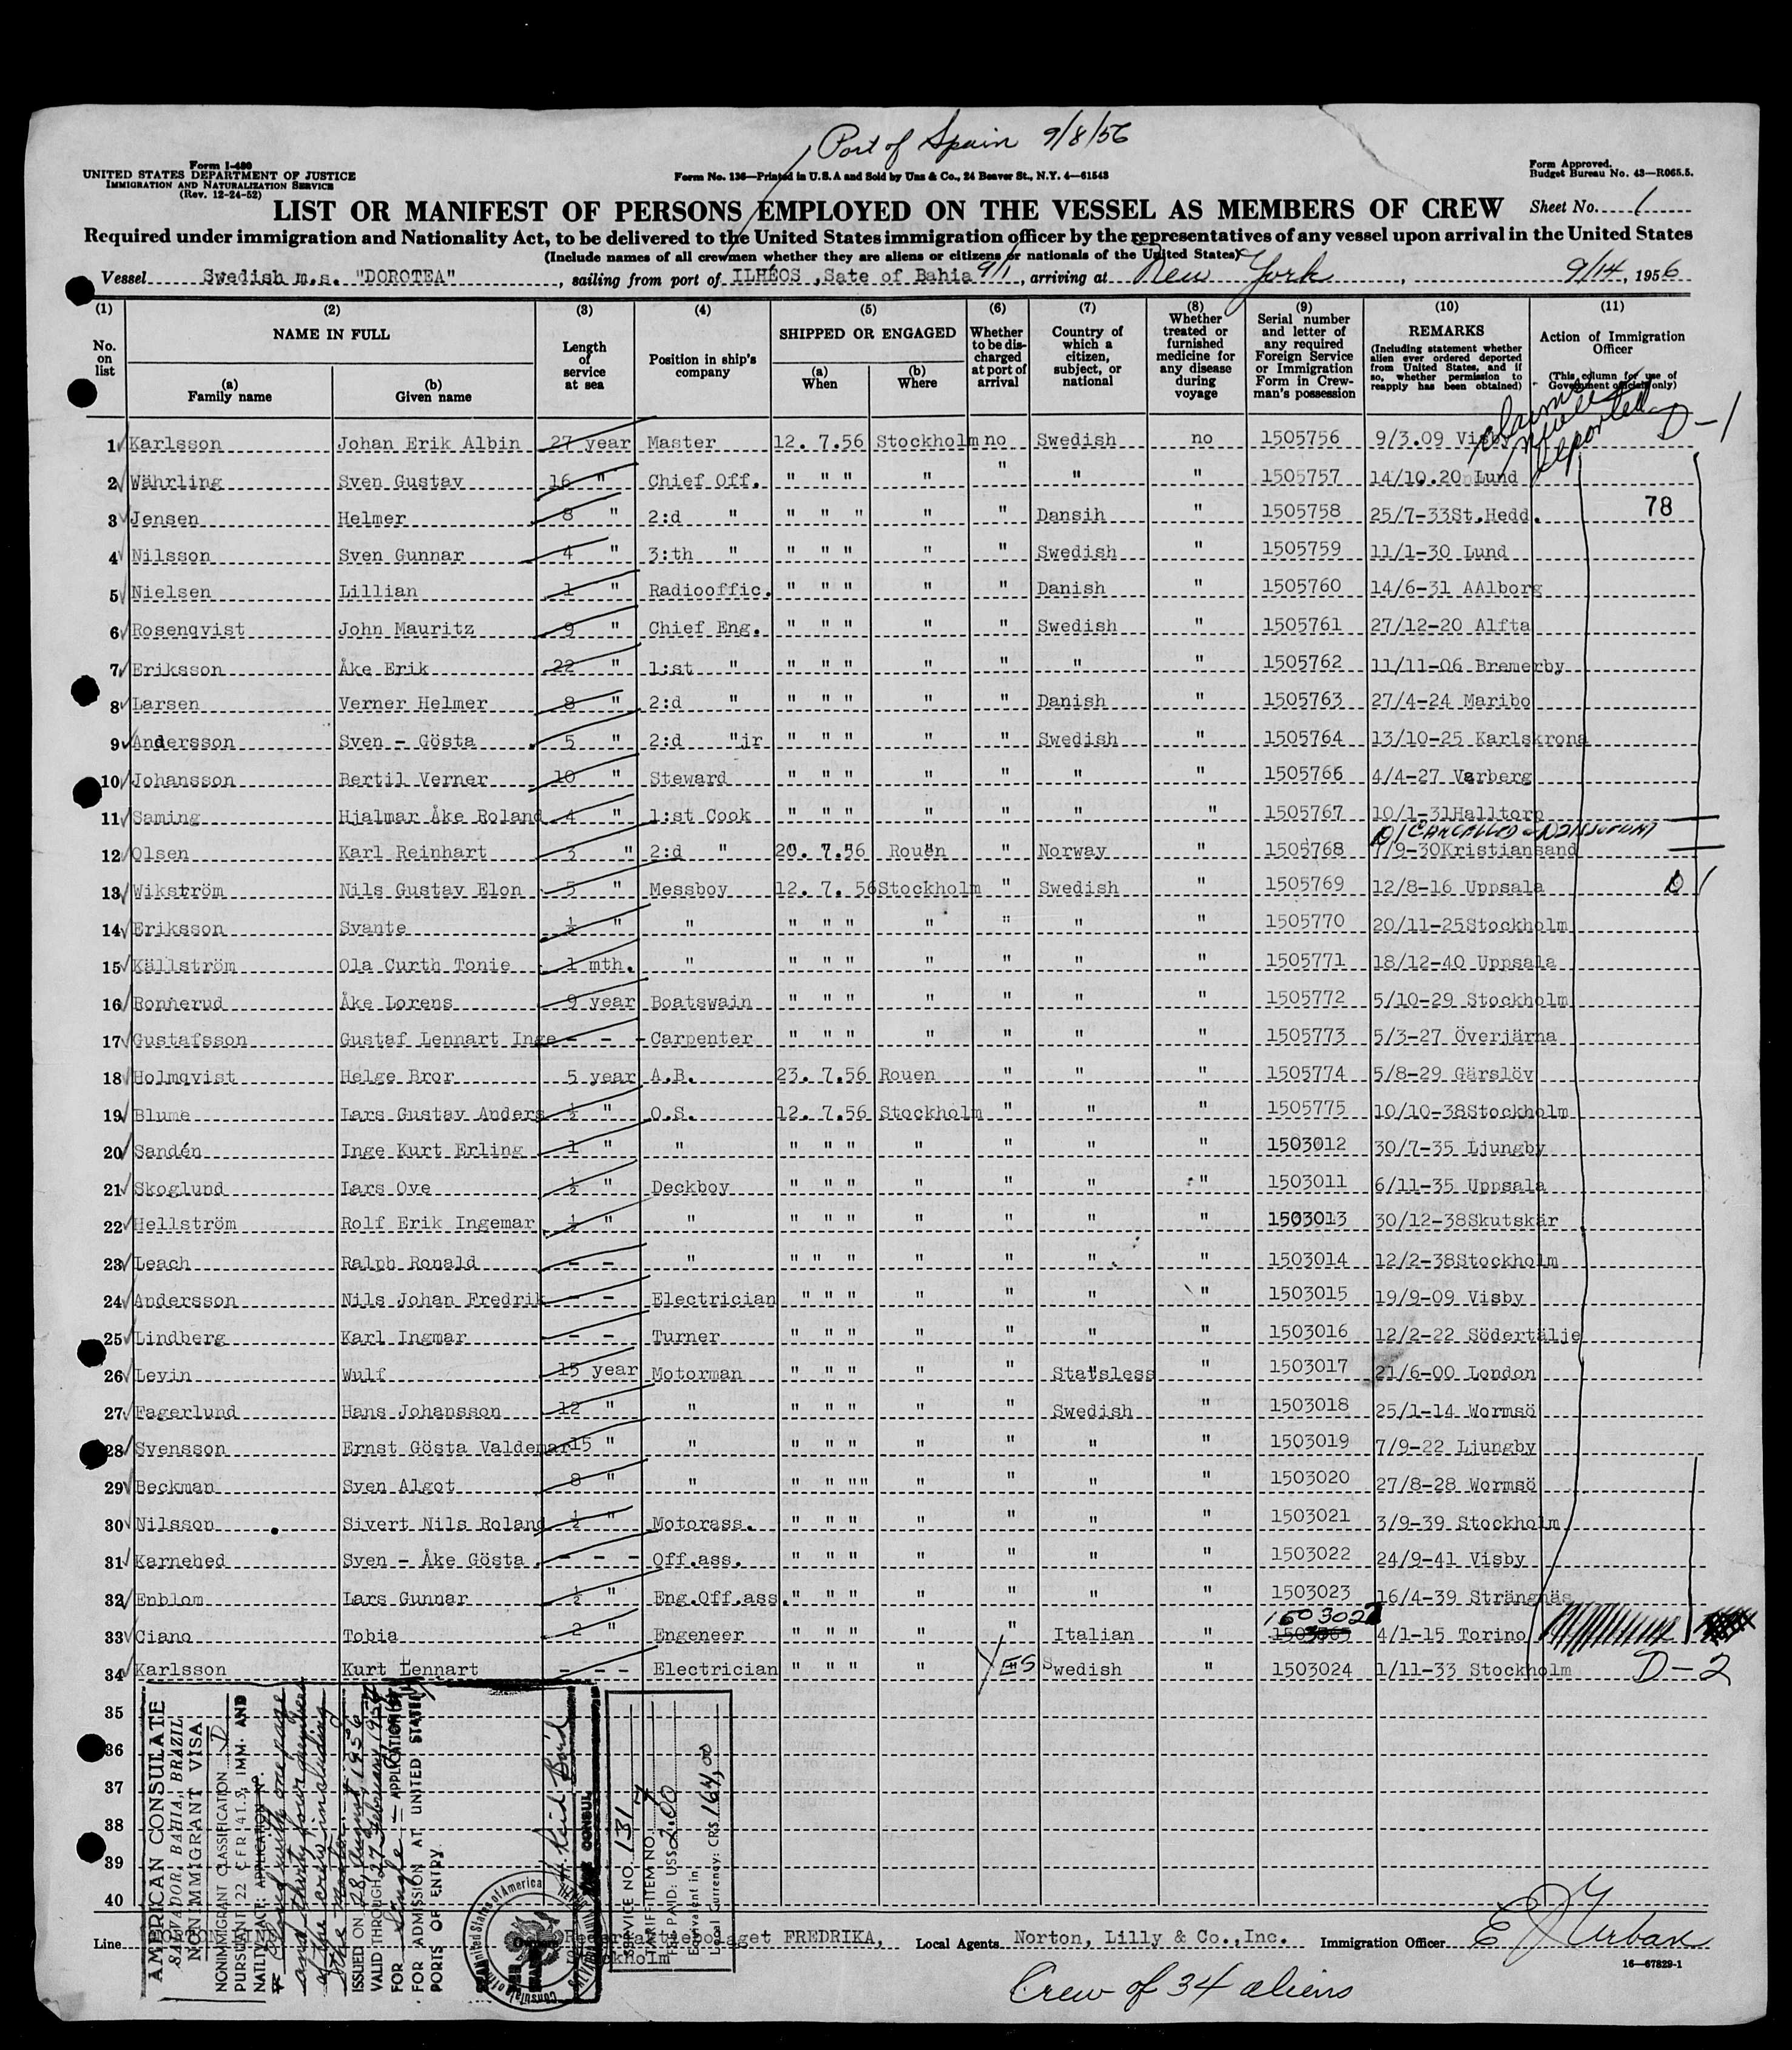 Port of Spain 9/8/56
Form I-480
UNITED STATES DEPARTMENT OF JUSTICE
IMMIGRATION AND NATURALIZATION SERVICE
(Rev. 12-24-52)
Form No. 136—Printed in U.S.A and Sold by Unz & Co., 24 Beaver St., N.Y. 4—61543
Form Approved.
Budget Bureau No. 43—R065.5.
LIST OR MANIFEST OF PERSONS EMPLOYED ON THE VESSEL AS MEMBERS OF CREW Sheet No. 1
Required under immigration and Nationality Act, to be delivered to the United States immigration officer by the representatives of any vessel upon arrival in the United States
(Include names of all crewmen whether they are aliens or citizens or nationals of the United States)
Vessel Swedish m.s. "DOROTEA", sailing from port of ILHÉOS, Sate of Bahia 9/1, arriving at New York, 9/14, 1956
(1) (2) (3) (4) (5) (6) (7) (8) (9) (10) (11)
No. on list
NAME IN FULL
(a) Family name
(b) Given name
Length of service at sea
Position in ship's company
SHIPPED OR ENGAGED
(a) When
(b) Where
Whether to be discharged at port of arrival
Country of which a citizen, subject, or national
Whether treated or furnished medicine for any disease during voyage
Serial number and letter of any required Foreign Service or Immigration Form in Crewman's possession
REMARKS
(Including statement whether alien ever ordered deported from United States, and if so, whether permission to reapply has been obtained)
Action of Immigration Officer
(This column for use of Government officials only)
claims never deported D-1
1 Karlsson Johan Erik Albin 27 year Master 12. 7.56 Stockholm no Swedish no 1505756 9/3.09 Visby
2 Währling Sven Gustav 16 " Chief Off. " " " " " " " 1505757 14/10.20 Lund
3 Jensen Helmer 8 " 2:d " " " " " " Dansih " 1505758 25/7-33St.Hedd. 78
4 Nilsson Sven Gunnar 4 " 3:th " " " " " " Swedish " 1505759 11/1-30 Lund
5 Nielsen Lillian 1 " Radiooffic. " " " " " Danish " 1505760 14/6-31 AAlborg
6 Rosenqvist John Mauritz 9 " Chief Eng. " " " " " Swedish " 1505761 27/12-20 Alfta
7 Eriksson Åke Erik 22 " 1:st " " " " " " " " 1505762 11/11-06 Bremerby
8 Larsen Verner Helmer 8 " 2:d " " " " " " Danish " 1505763 27/4-24 Maribo
9 Andersson Sven - Gösta 5 " 2:d "jr " " " " " Swedish " 1505764 13/10-25 Karlskrona
10 Johansson Bertil Verner 10 " Steward " " " " " " " 1505766 4/4-27 Varberg
11 Saming Hjalmar Åke Roland 4 " 1:st Cook " " " " " " " 1505767 10/1-31Halltorp
12 Olsen Karl Reinhart 3 " 2:d " 20. 7.56 Rouen " Norway " 1505768 7/9-30Kristiansand
13 Wikström Nils Gustav Elon 5 " Messboy 12. 7. 56Stockholm " Swedish " 1505769 12/8-16 Uppsala D 1
14 Eriksson Svante ½ " " " " " " " " " 1505770 20/11-25Stockholm
15 Källström Ola Curth Tonie 1 mth. " " " " " " " " 1505771 18/12-40 Uppsala
16 Ronnerud Åke Lorens 9 year Boatswain " " " " " " " 1505772 5/10-29 Stockholm
17 Gustafsson Gustaf Lennart Inge - - - Carpenter " " " " " " " 1505773 5/3-27 Överjärna
18 Holmqvist Helge Bror 5 year A.B. 23. 7.56 Rouen " " " 1505774 5/8-29 Gärslöv
19 Blume Lars Gustav Anders ½ " O.S. 12. 7.56 Stockholm " " " 1505775 10/10-38Stockholm
20 Sandén Inge Kurt Erling 1 " " " " " " " " " 1503012 30/7-35 Ljungby
21 Skoglund Lars Ove ½ " Deckboy " " " " " " " 1503011 6/11-35 Uppsala
22 Hellström Rolf Erik Ingemar ½ " " " " " " " " " 1503013 30/12-38Skutskär
23 Leach Ralph Ronald - - " " " " " " " " 1503014 12/2-38Stockholm
24 Andersson Nils Johan Fredrik - - Electrician " " " " " " " 1503015 19/9-09 Visby
25 Lindberg Karl Ingmar - - Turner " " " " " " " 1503016 12/2-22 Södertälje
26 Levin Wulf 15 year Motorman " " " " " Statsless " 1503017 21/6-00 London
27 Fagerlund Hans Johansson 12 " " " " " " " Swedish " 1503018 25/1-14 Wormsö
28 Svensson Ernst Gösta Valdemar 15 " " " " " " " " " 1503019 7/9-22 Ljungby
29 Beckman Sven Algot 8 " " " " "" " " " " 1503020 27/8-28 Wormsö
30 Nilsson Sivert Nils Roland ½ " Motorass. " " " " " " " 1503021 3/9-39 Stockholm
31 Karnehed Sven - Åke Gösta - - - Off.ass. " " " " " " " 1503022 24/9-41 Visby
32 Enblom Lars Gunnar ½ " Eng.Off.ass. " " " " " " " 1503023 16/4-39 Strängnäs
33 Ciano Tobia 2 " Engeneer " " " " " Italian " 1503027 4/1-15 Torino
34 Karlsson Kurt Lennart - - - Electrician " " " " YES Swedish " 1503024 1/11-33 Stockholm D-2
35
36
37
38
39
40
AMERICAN CONSULATE
SALVADOR, BAHIA, BRAZIL
NONIMMIGRANT VISA
NONIMMIGRANT CLASSIFICATION D
PURSUANT 22 CFR 41.5; IMM. AND
NATLTY. ACT; APPLICATION No.
Visaed with one page
and thirty four members
of the crew including
the Master.
ISSUED ON 28 August 1956
VALID THROUGH 27 February 1957
FOR Single APPLICATION(S)
FOR ADMISSION AT UNITED STATES
PORTS OF ENTRY.
SERVICE NO. 131
TARIFF ITEM NO. 7
FEE PAID: US$ 2.00
Equivalent in
Local Currency: CR$ 164,00
Line Owners FREDRIKA, Stockholm Local Agents Norton, Lilly & Co.,Inc. Immigration Officer E J Urban
16—67829-1
Crew of 34 aliens